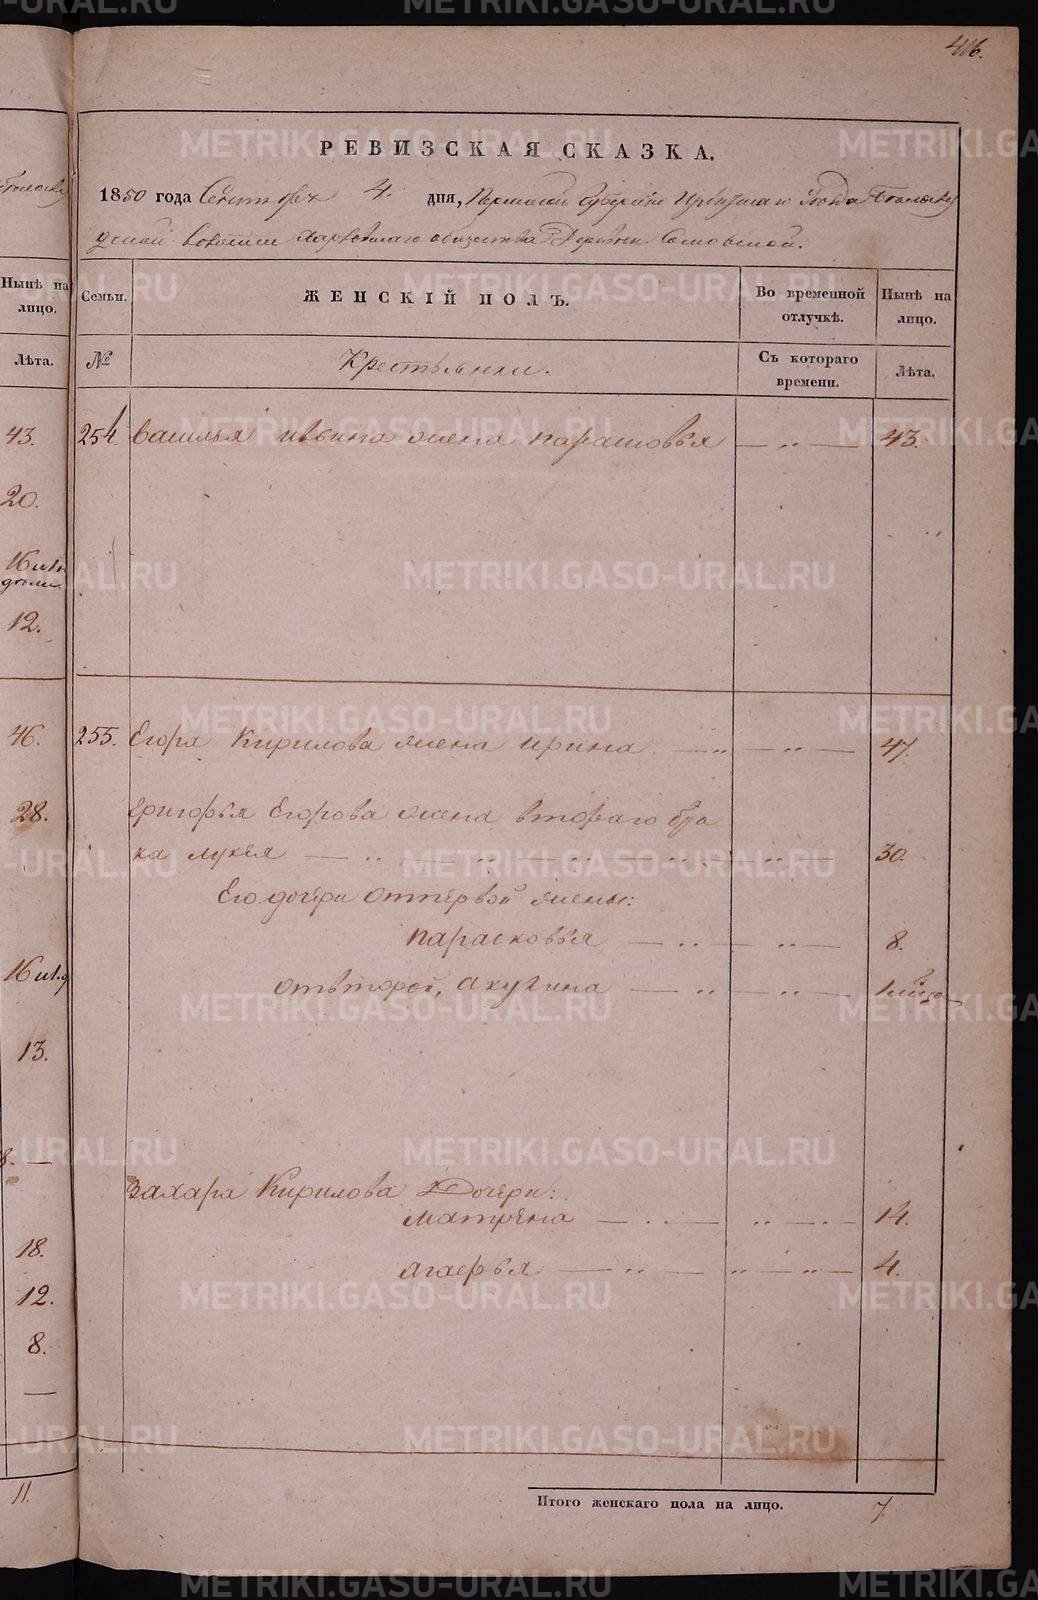 416.
РЕВИЗСКАЯ СКАЗКА.
1850 года Сентября 4. дня, Пермской Губернии Ирбитскаго Уезда
волости Харловскаго общества Деревни
Ныне на лицо.
Семьи.
ЖЕНСКІЙ ПОЛЪ.
Во временной отлучкѣ.
Нынѣ на лицо.
Лѣта.
№
Крестьянки.
Съ котораго времени.
Лѣта.
43.
254.
Василья жена Парасковья — „ — 43.
20.
12.
46.
255.
Егора Кирилова жена Ирина — „ — „ — 47.
28.
Григорья Егорова жена втораго бра
ка Лукея — „ — „ — „ — „ — „ — 30.
Его дочери отпервой жены:
Парасковья — „ — „ — 8.
отвторой, Акулина — „ — „ —
13.
Захара Кирилова Дочери:
Матрена — „ — „ — „ — 14.
18.
Агафья — „ — „ — „ — 4.
12.
8.
11.
Итого женскаго пола на лицо.
7.
METRIKI.GASO-URAL.RU